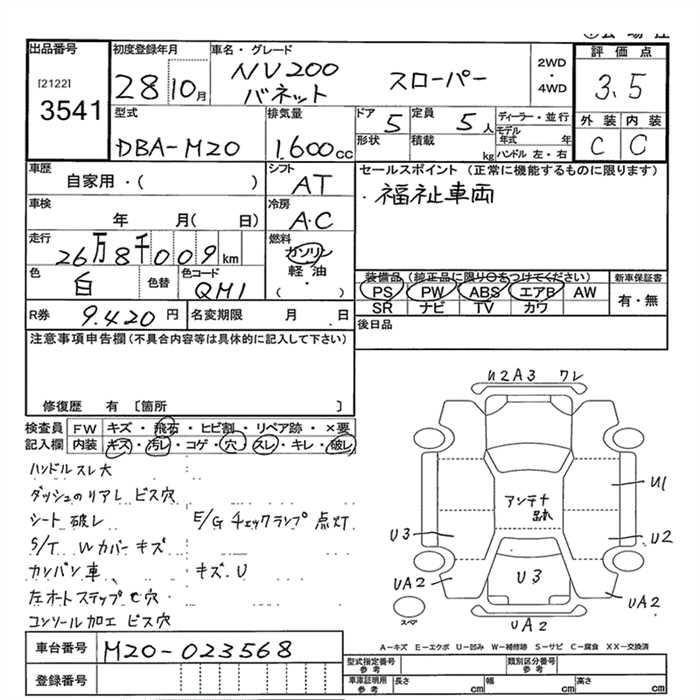 出品番号
[2122]
3541
初度登録年月
28 10月
車名・グレード
NV200
バネット
スローパー
2WD
・
4WD
評価点
3.5
外装 内装
C C
型式
DBA-M20
排気量
1.600cc
ドア 5
定員 5人
形状
積載 kg
ディーラー・並行
モデル年式 年
ハンドル 左・右
車歴
自家用・( )
シフト
AT
セールスポイント (正常に機能するものに限ります)
・福祉車両
車検
年 月( 日)
冷房
A・C
走行
26万8千009km
燃料
ガソリン
軽・油
( )
色
白
色替
色コード
QM1
装備品 (純正品に限り○をつけてください)
PS PW ABS エアB AW
SR ナビ TV カワ
新車保証書
有・無
R券 9.420円
名変期限 月 日
後日品
注意事項申告欄(不具合内容等は具体的に記入して下さい)
修復歴 有 〔箇所 〕
検査員 FW キズ・飛石・ヒビ割・リペア跡・×要
記入欄 内装 キズ・汚レ・コゲ・穴・スレ・キレ・破レ
ハンドルスレ大
ダッシュのリアレ ビス穴
シート 破レ
E/G チェックランプ 点灯
S/T Wカバー キズ
カンバン車 キズ.U
左オートステップ ℃穴
コンソール加工 ビス穴
U2A3 ワレ
U1
アンテナ
跡
U3
U2
U3
UA2
UA2
UA2
スペア
A-キズ E-エクボ U-凹み W-補修跡 S-サビ C-腐食 XX-交換済
車台番号
M20-023568
登録番号
型式指定番号
参考
類別区分番号
参考
車庫証明用
参考
長さ cm 幅 cm 高さ cm